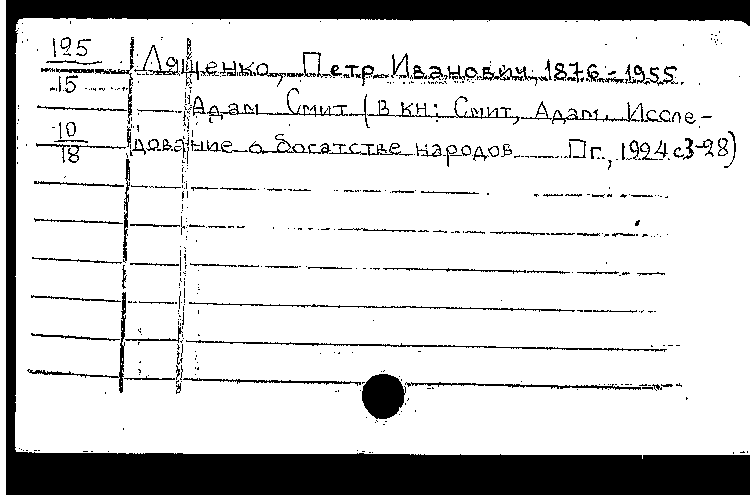 195
15
Лященко, Петр Иванович, 1876-1955
Адам Смит (в кн: Смит, Адам. Иссле-
10
18
дование о богатстве народов Пг., 1924 с3-28)